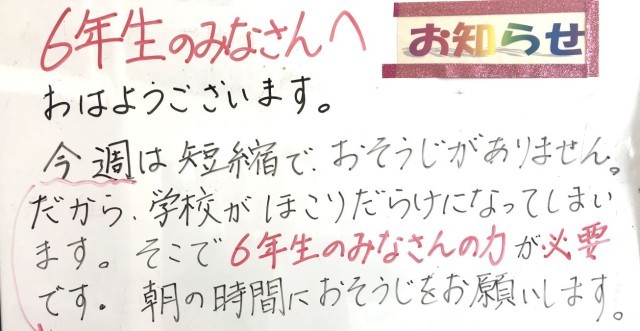 6年生のみなさんへ
お知らせ
おはようございます。
今週は短縮で、おそうじがありません。
だから、学校がほこりだらけになってしまい
ます。そこで6年生のみなさんの力が必要
です。朝の時間におそうじをお願いします。